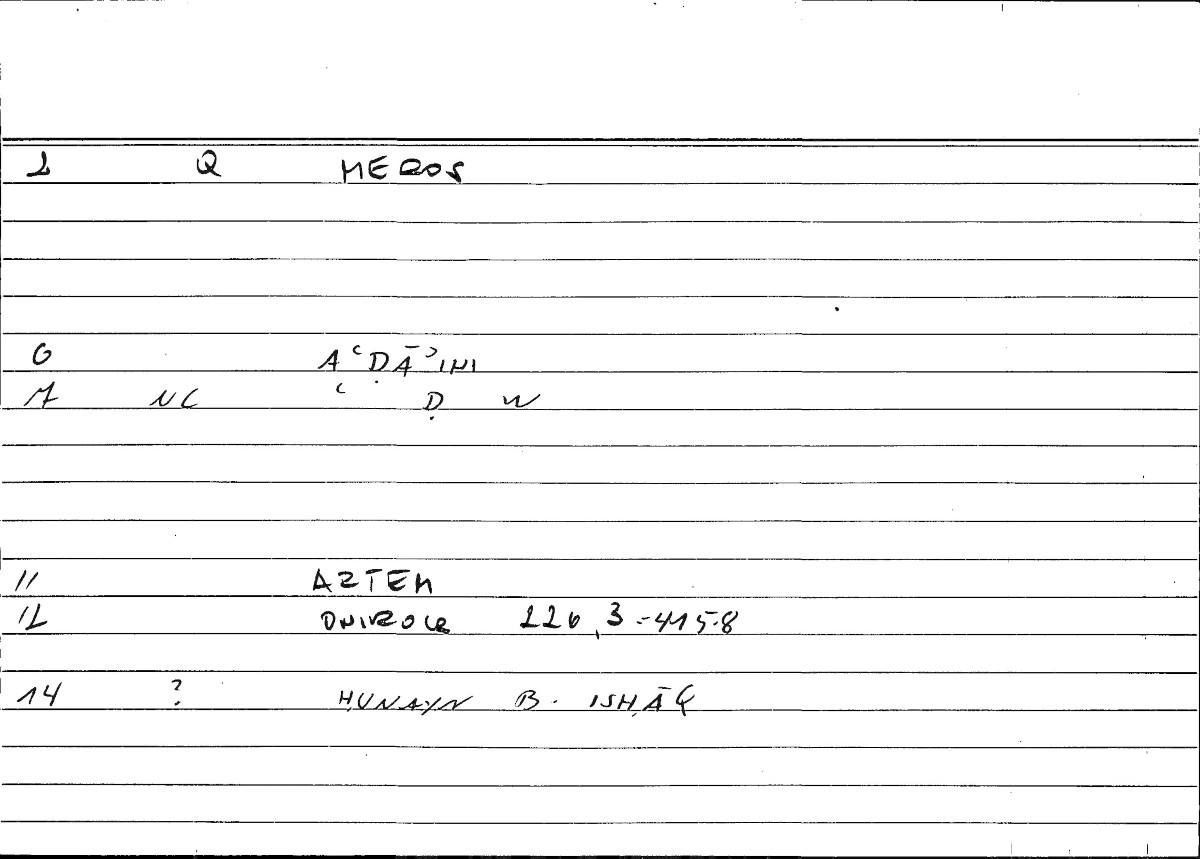 2 Q MEROS
6 AʿḌĀʾIHI
7 NC ʿ Ḍ W
11 ARTEM
12 ONIROCR 226,3=415.8
14 ? ḤUNAYN B. ISḤĀQ